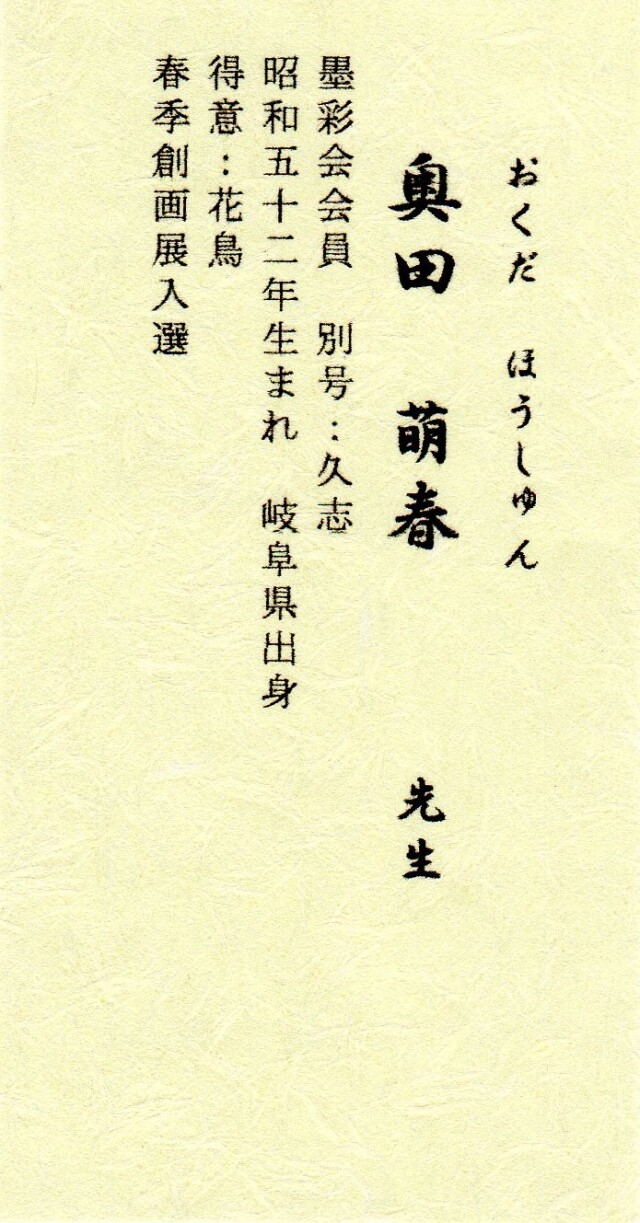 おくだ ほうしゅん
奥田 萌春 先生
墨彩会会員 別号：久志
昭和五十二年生まれ 岐阜県出身
得意：花鳥
春季創画展入選